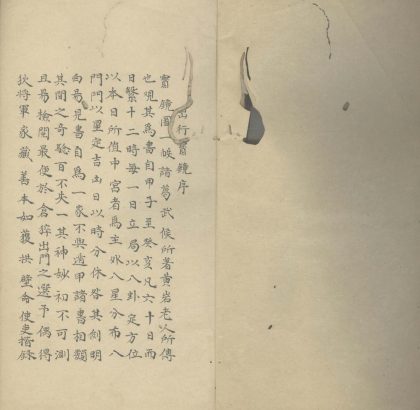 出行寶鏡序
寶鏡圖一帙諸葛武侯所著黄岩老人所傳
也現其爲書自甲子至癸亥凡六十日而
日繫十二時每一日立局以八卦定方位
以本日所值中宮者爲主外八星分布八
門門以星定吉凶日以時分休咎其刻明
向易見書自爲一家不與遁甲諸書相類
其間之奇驗百不失一其神妙初不可測
且易檢閱最便於倉猝出門之選予偶得
狄將軍家藏善本如獲拱璧命使更楷錄